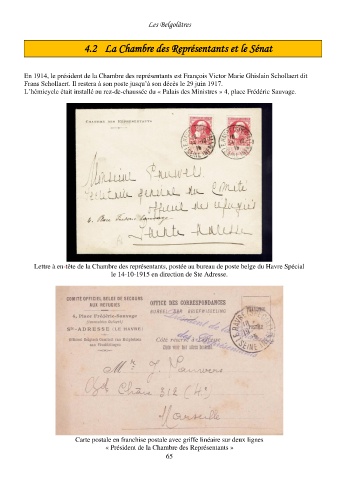 Les Belgolâtres
4.2 La Chambre des Représentants et le Sénat
En 1914, le président de la Chambre des représentants est François Victor Marie Ghislain Schollaert dit
Frans Schollaert. Il restera à son poste jusqu'à son décès le 29 juin 1917.
L'hémicycle était installé au rez-de-chaussée du « Palais des Ministres » 4, place Frédéric Sauvage.
CHAMBRE DES REPRÉSENTANTS
Monsieur
général du Comité
officiel de réfugiés
Sainte Adresse
Lettre à en-tête de la Chambre des représentants, postée au bureau de poste belge du Havre Spécial
le 14-10-1915 en direction de Ste Adresse.
COMITÉ OFFICIEL BELGE DE SECOURS
AUX RÉFUGIÉS
OFFICE DES CORRESPONDANCES
4, Place Frédéric-Sauvage
Ste-ADRESSE (LE HAVRE)
Côté réservé à
Mr J.
312
Marseille
Carte postale en franchise postale avec griffe linéaire sur deux lignes
« Président de la Chambre des Représentants »
65